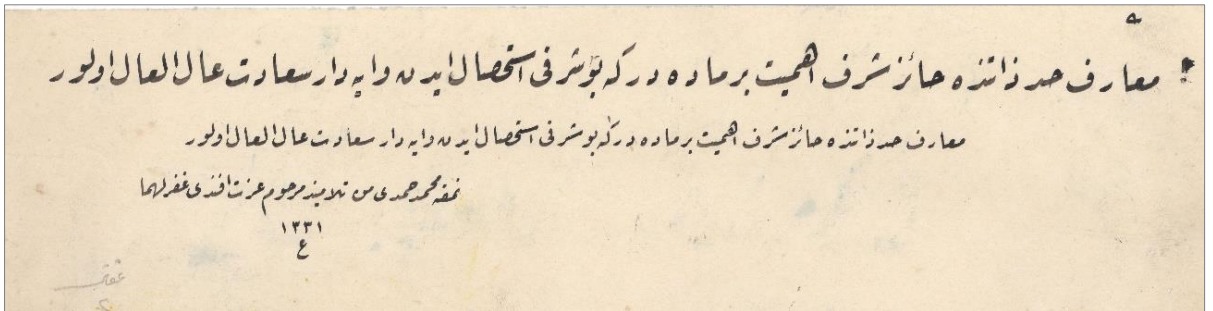 ٩
معارف حد ذاتنده حائز شرف اهميت بر ماده در كه بو شرفى استحصال ايدن وايه دار سعادت عال العال اولور
معارف حد ذاتنده حائز شرف اهميت بر ماده در كه بو شرفى استحصال ايدن وايه دار سعادت عال العال اولور
نمقه محمد حمدى من تلاميذ مرحوم عزت افندى غفر لهما
١٣٣١
ع